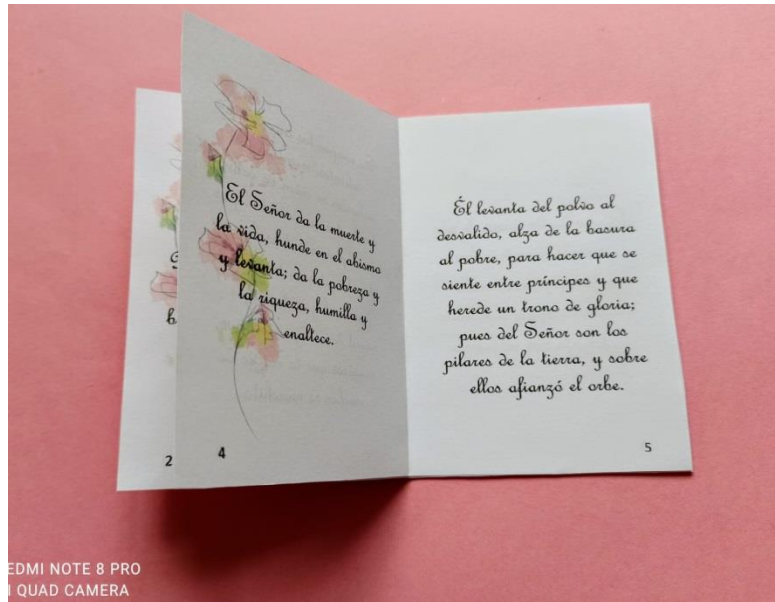 El Señor da la muerte y
la vida, hunde en el abismo
y levanta; da la pobreza y
la riqueza, humilla y
enaltece.
2
4
Él levanta del polvo al
desvalido, alza de la basura
al pobre, para hacer que se
siente entre príncipes y que
herede un trono de gloria;
pues del Señor son los
pilares de la tierra, y sobre
ellos afianzó el orbe.
5
EDMI NOTE 8 PRO
I QUAD CAMERA